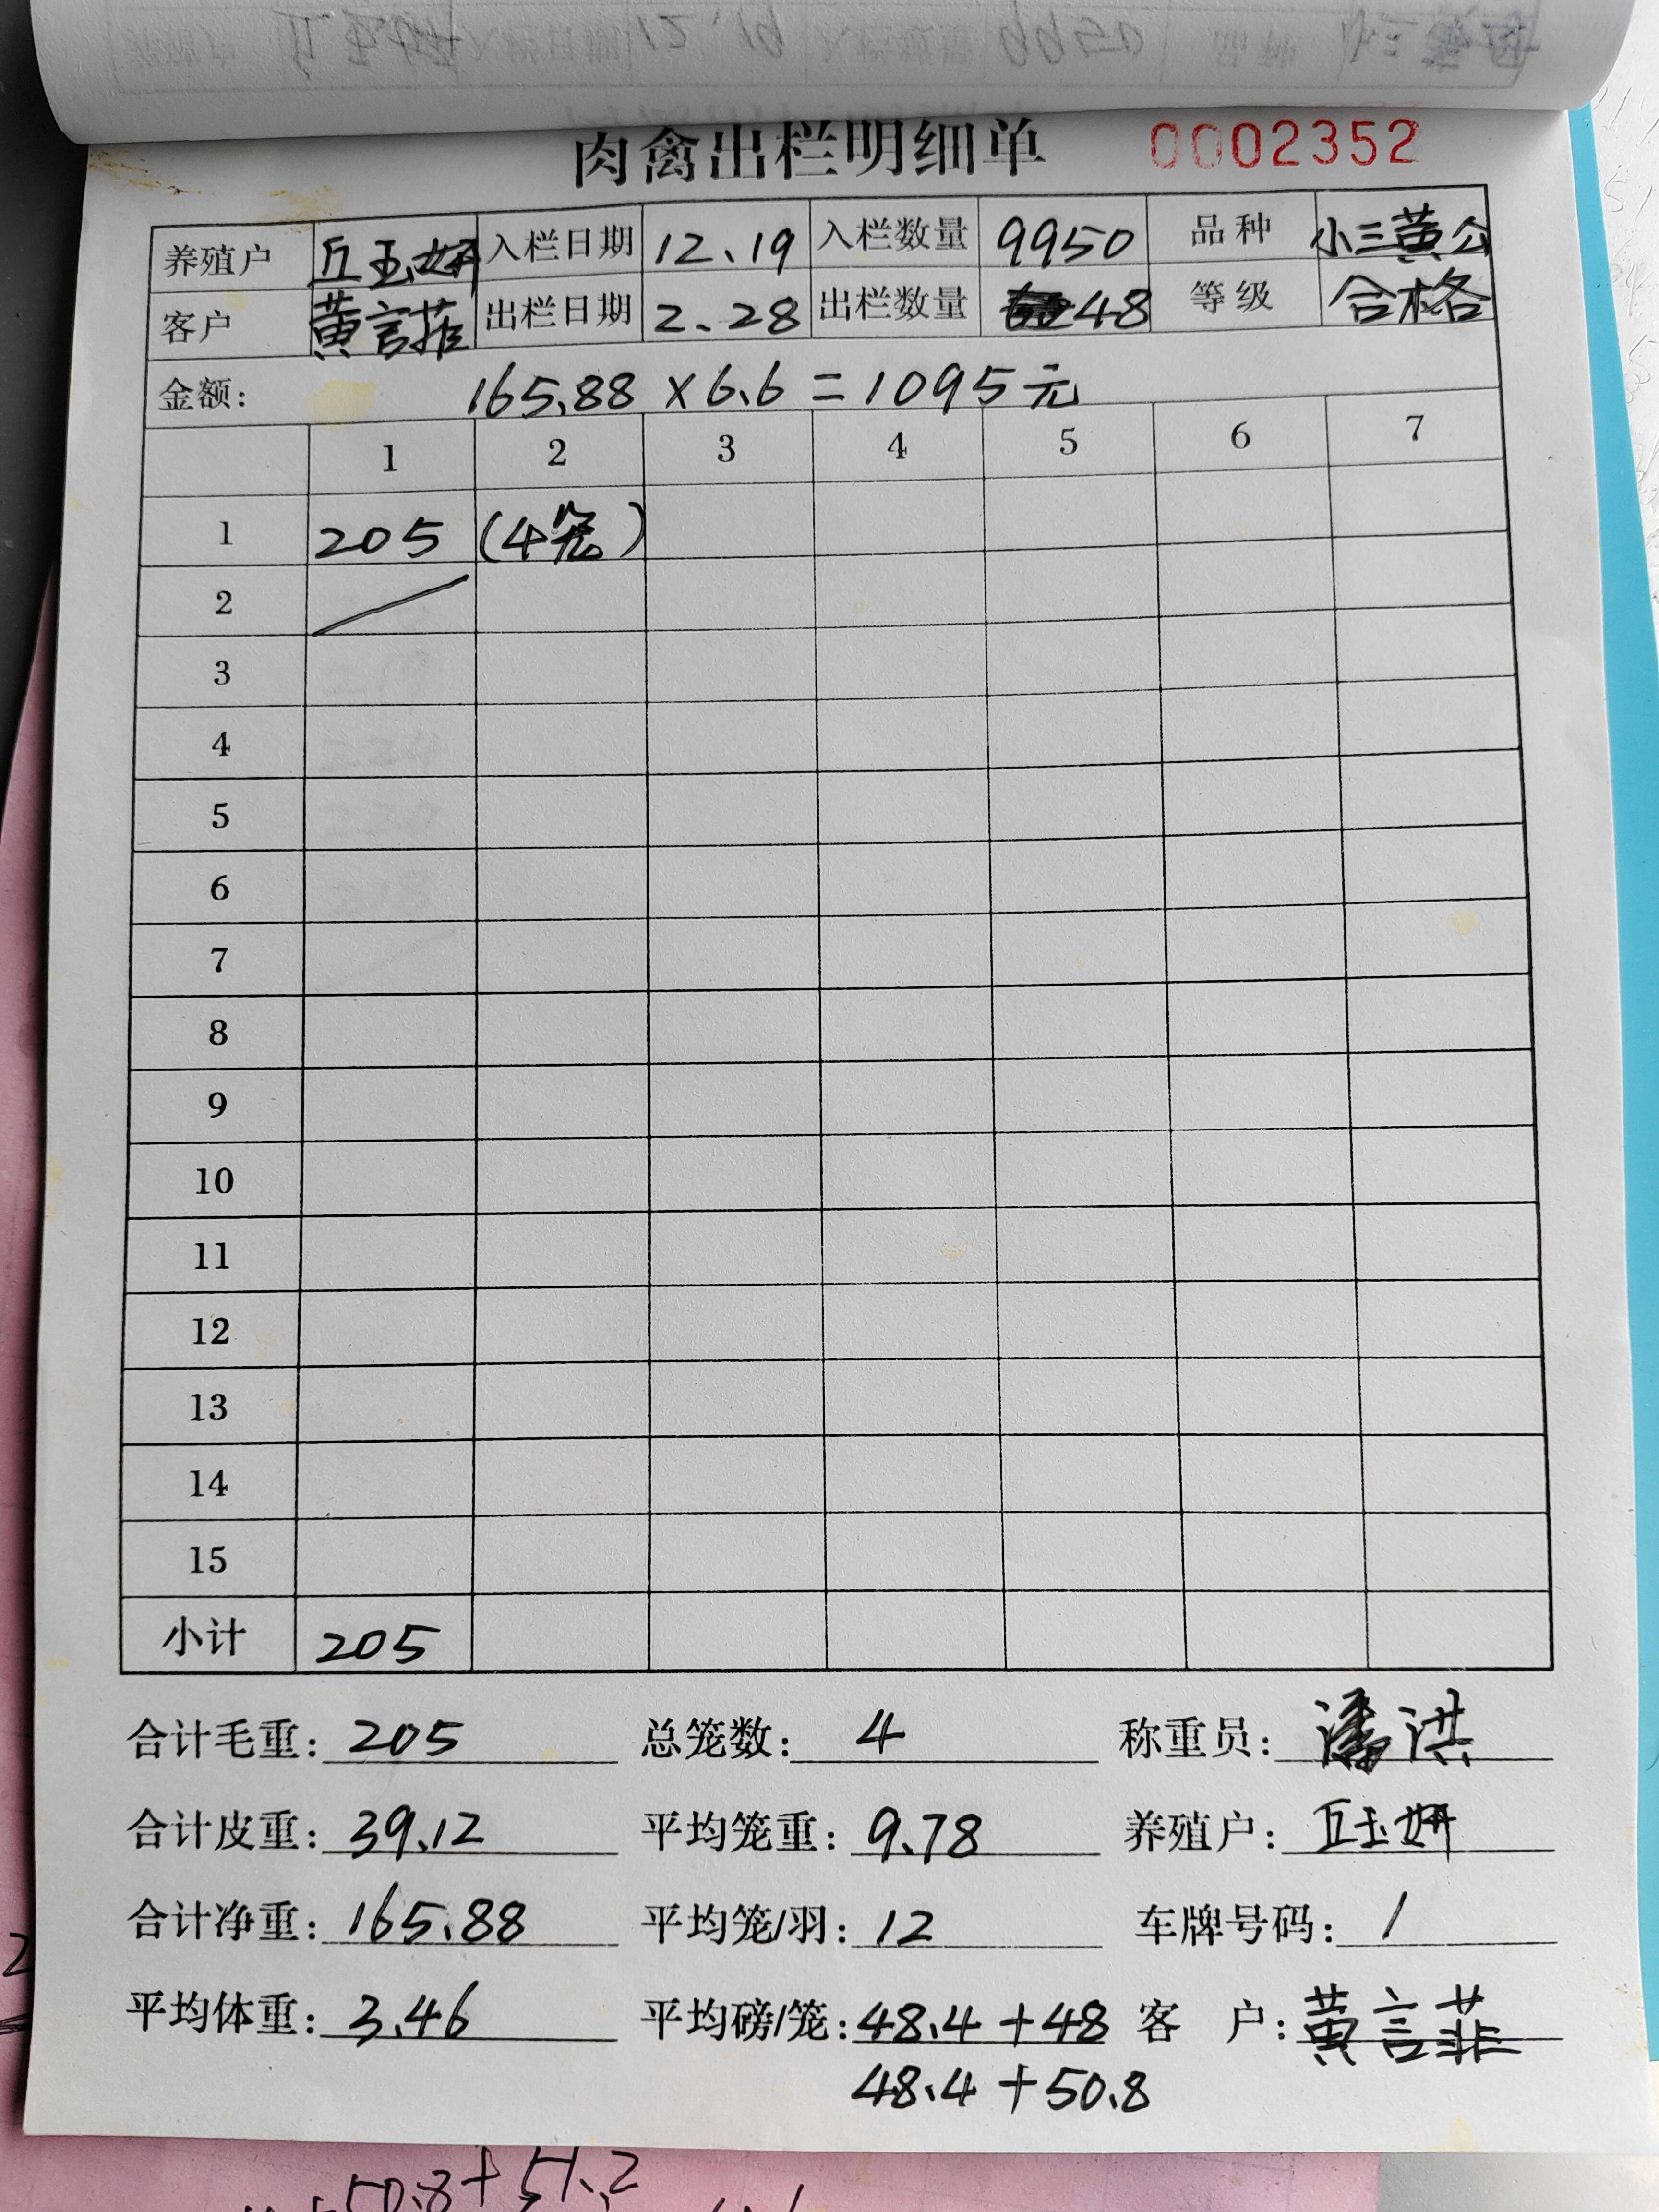 肉禽出栏明细单 0002352
养殖户 丘玉妍 入栏日期 12.19 入栏数量 9950 品种 小三黄公
客户 黄言菲 出栏日期 2.28 出栏数量 48 等级 合格
金额: 165.88 × 6.6 = 1095元
1 2 3 4 5 6 7
1 205 (4笼)
2
3
4
5
6
7
8
9
10
11
12
13
14
15
小计 205
合计毛重: 205 总笼数: 4 称重员: 潘洪
合计皮重: 39.12 平均笼重: 9.78 养殖户: 丘玉妍
合计净重: 165.88 平均笼/羽: 12 车牌号码: /
平均体重: 3.46 平均磅/笼: 48.4 + 48 客 户: 黄言菲
48.4 + 50.8
50.8 + 51.2